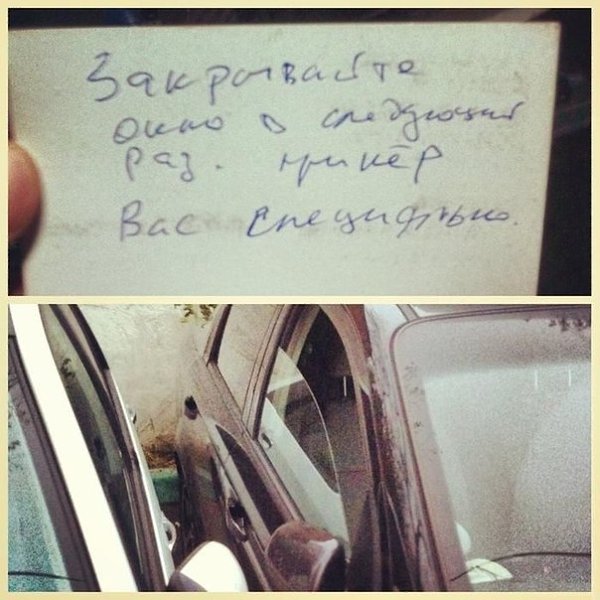 Закрывайте
окно в следующий
раз. прикёр
Вас специфично.